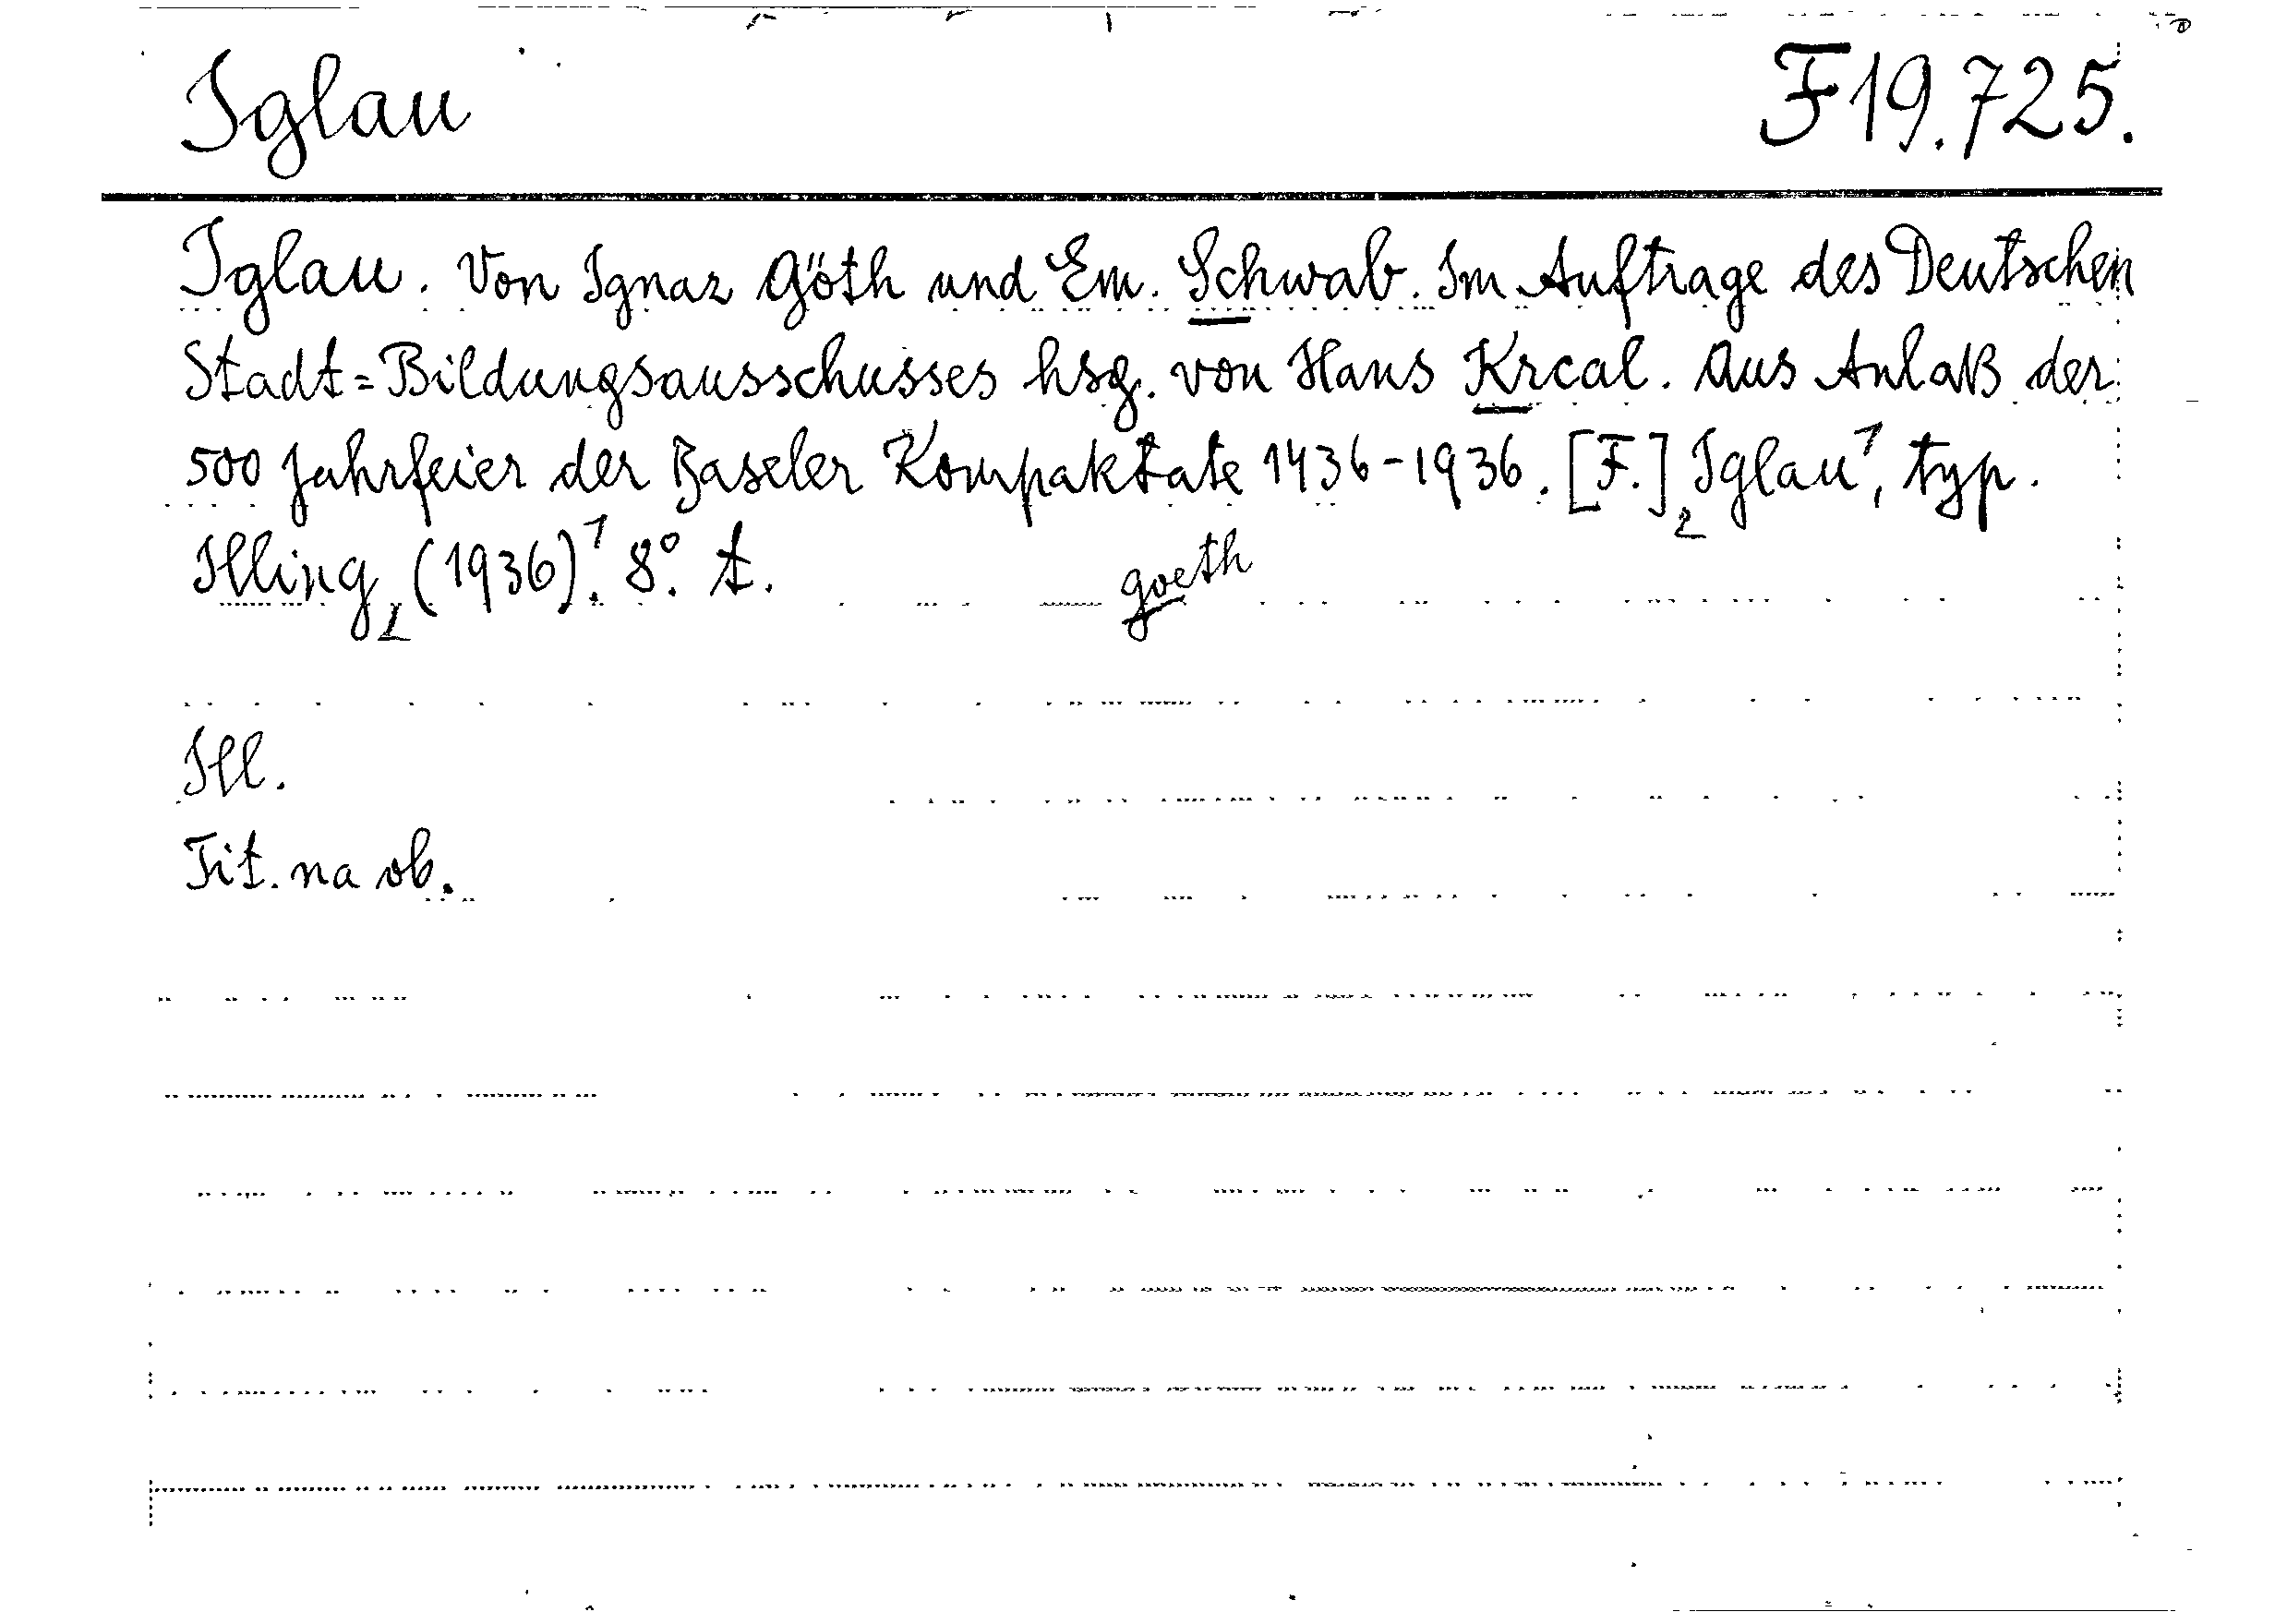 Iglau F 19.725.
Iglau. Von Ignaz Göth und Em. Schwab. Im Auftrage des Deutschen
Stadt=Bildungsausschusses hsg. von Hans Krcal. Aus Anlaß der
500 Jahrfeier der Baseler Kompaktate 1436-1936. [F.] Iglau, typ.
Illing (1936). 8°. t.
goeth
Ill.
Tit. na ob.